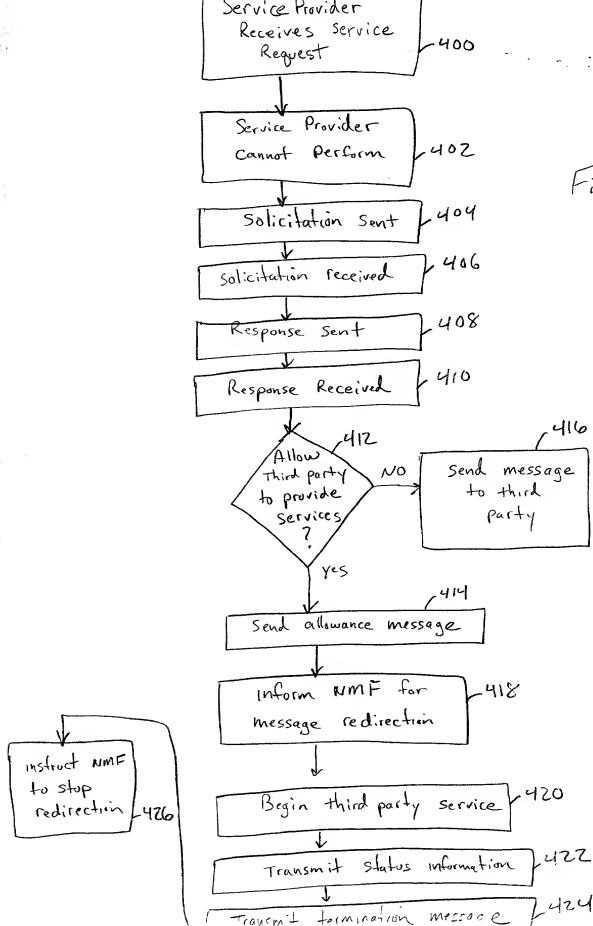 Service Provider
Receives Service
Request
400
Service Provider
Cannot Perform
402
Solicitation Sent
404
Solicitation received
406
Response Sent
408
Response Received
410
412
Allow
Third party
to provide
Services
?
NO
416
Send message
to third
party
yes
414
Send allowance message
Inform NMF for
message redirection
418
instruct NMF
to stop
redirection
426
Begin third party service
420
Transmit status information
422
Transmit termination message
424